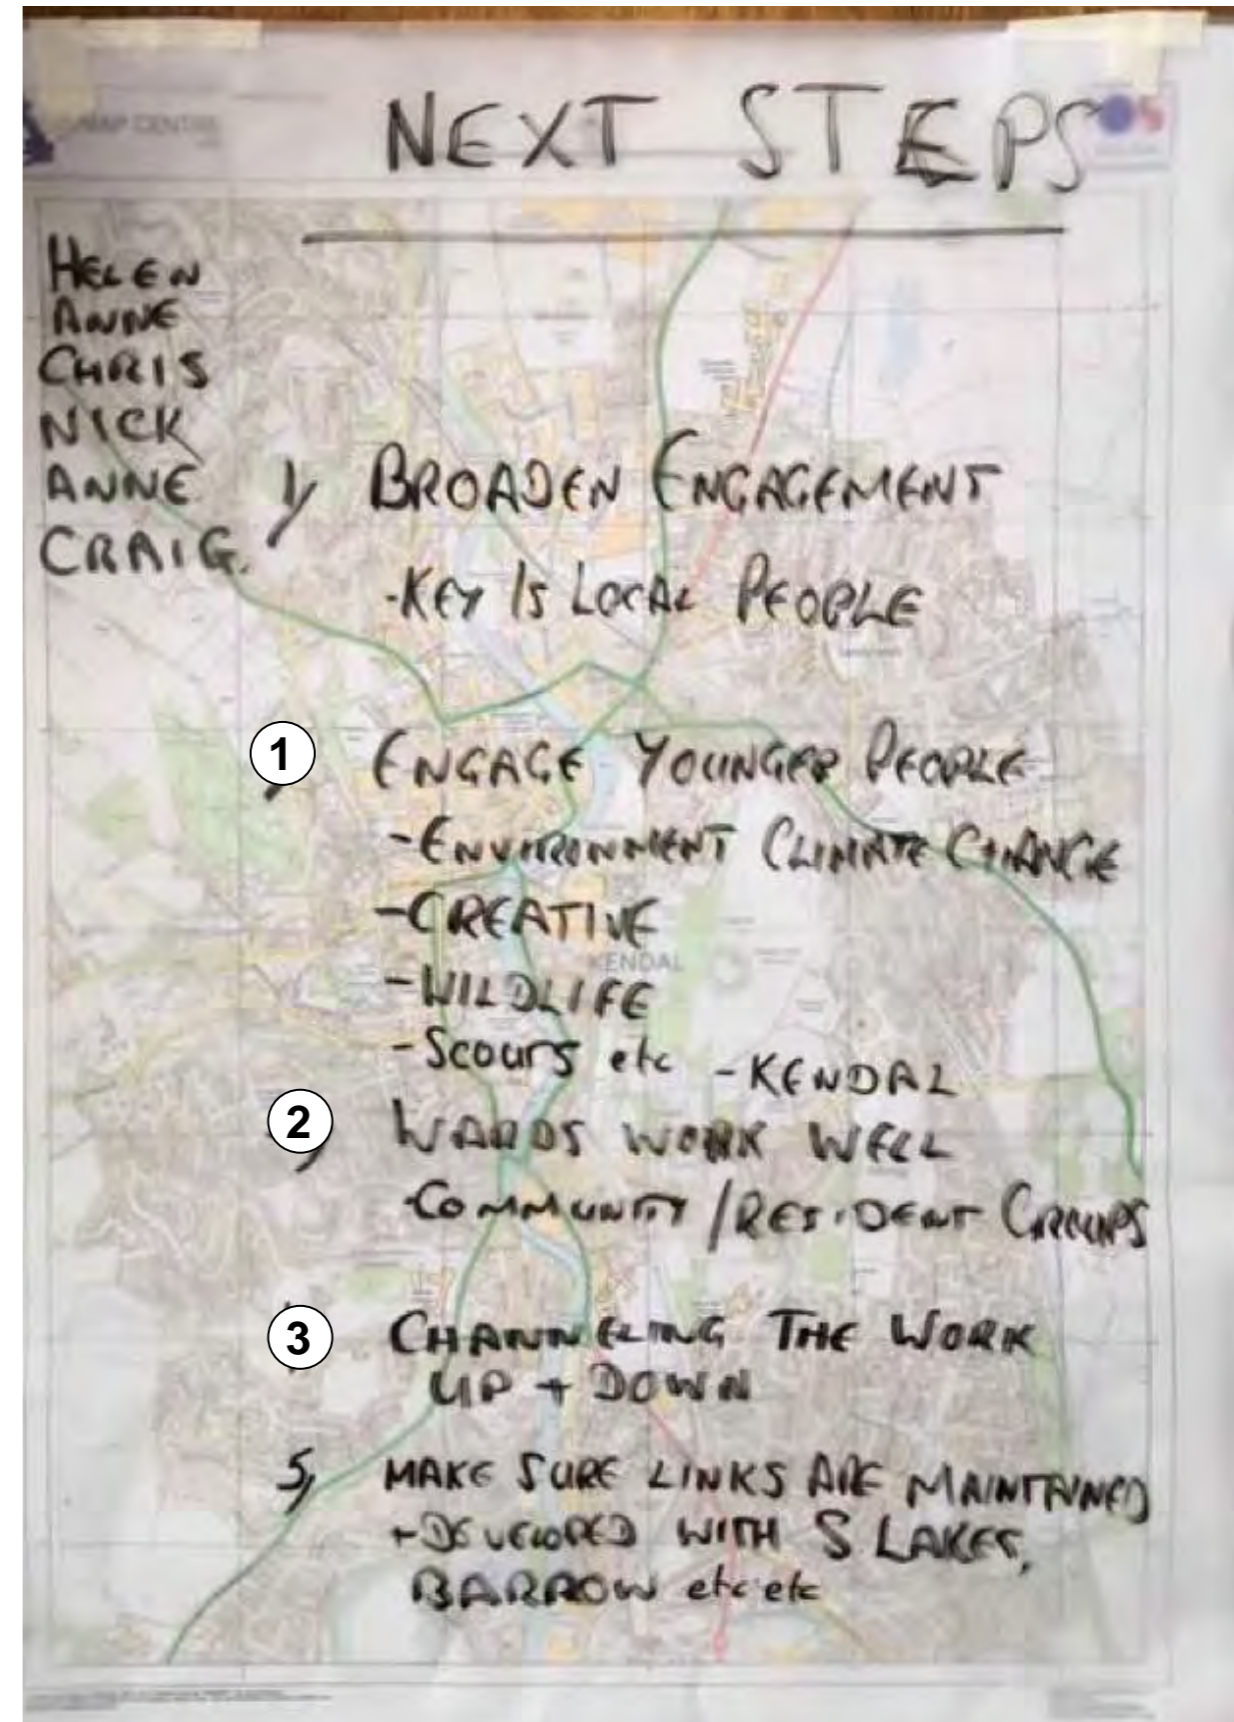 MAP CENTRE
NEXT STEPS
HELEN
ANNE
CHRIS
NICK
ANNE
CRAIG.
1, BROADEN ENGAGEMENT
-KEY IS LOCAL PEOPLE
1 ENGAGE YOUNGER PEOPLE
-ENVIRONMENT CLIMATE CHANGE
-CREATIVE
KENDAL
-WILDLIFE
-SCOUTS etc -KENDAL
2 WARDS WORK WELL
-COMMUNITY / RESIDENT GROUPS
3 CHANNELING THE WORK
UP + DOWN
5, MAKE SURE LINKS ARE MAINTAINED
+ DEVELOPED WITH S LAKES,
BARROW etc etc